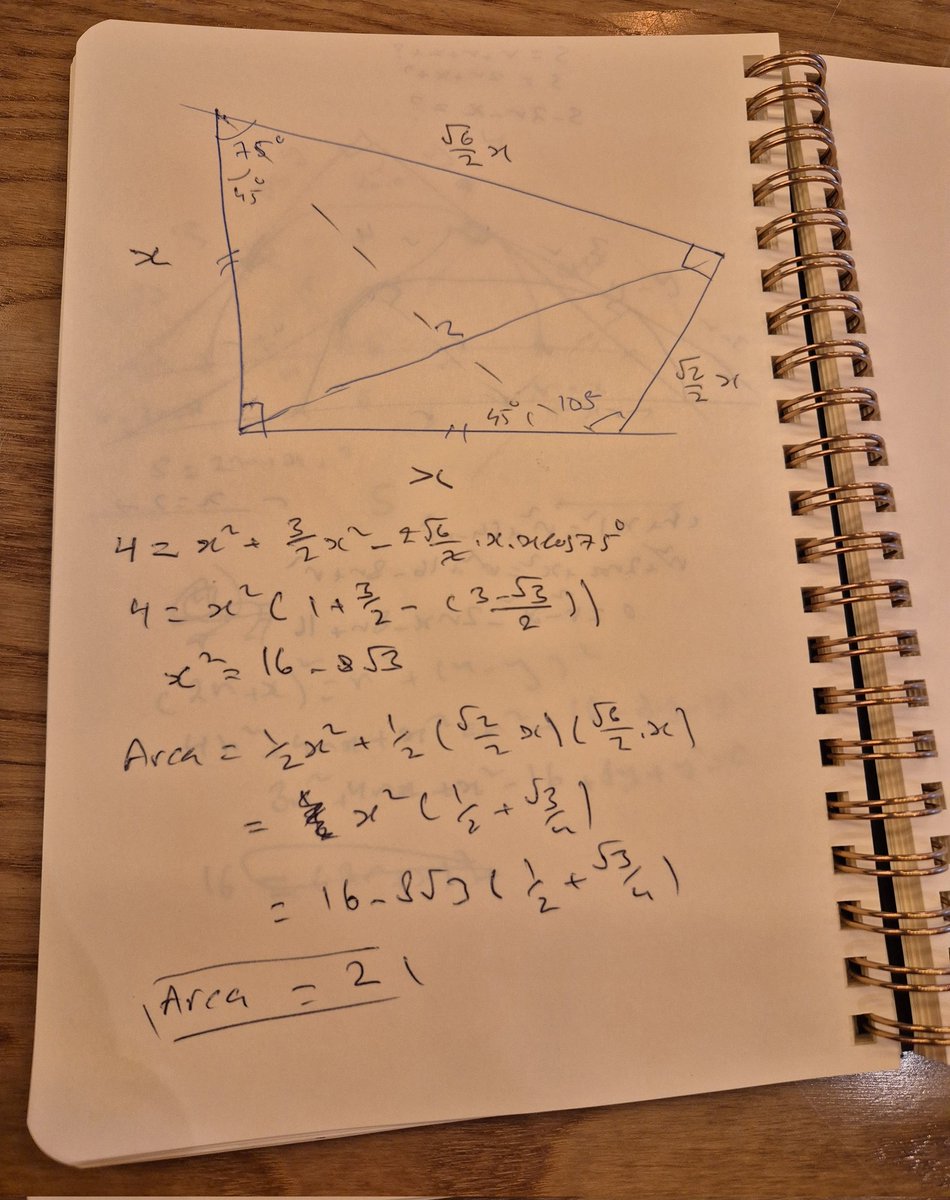 75°
45°
√6/2 x
x
2
√2/2 x
45°
105
x
4 = x² + 3/2 x² - 2√6/2 . x . x cos75°
4 = x² ( 1 + 3/2 - ( 3-√3/2 ) )
x² = 16 - 8√3
Area = 1/2 x² + 1/2 ( √2/2 x ) ( √6/2 . x )
= x² ( 1/2 + √3/4 )
= 16 - 8√3 ( 1/2 + √3/4 )
Area = 2